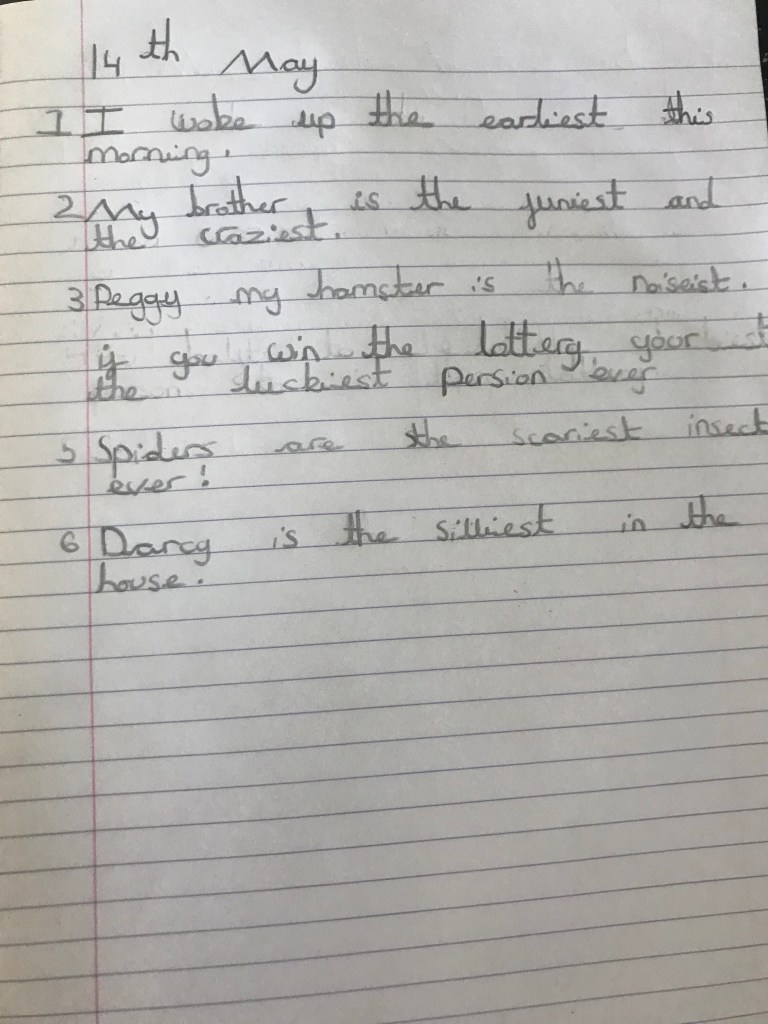 14th May
1 I woke up the earliest this
morning.
2 My brother is the funiest and
the craziest.
3 Peggy my hamster is the noiseist.
if you win the lottery your
the luckiest persion ever
5 Spiders are the scariest insect
ever!
6 Darcy is the silliest in the
house.